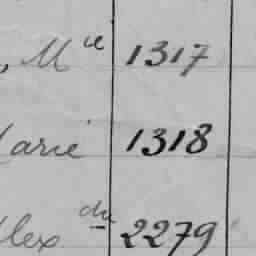 , Mie 1317
Marie 1318
Alex dre 2279